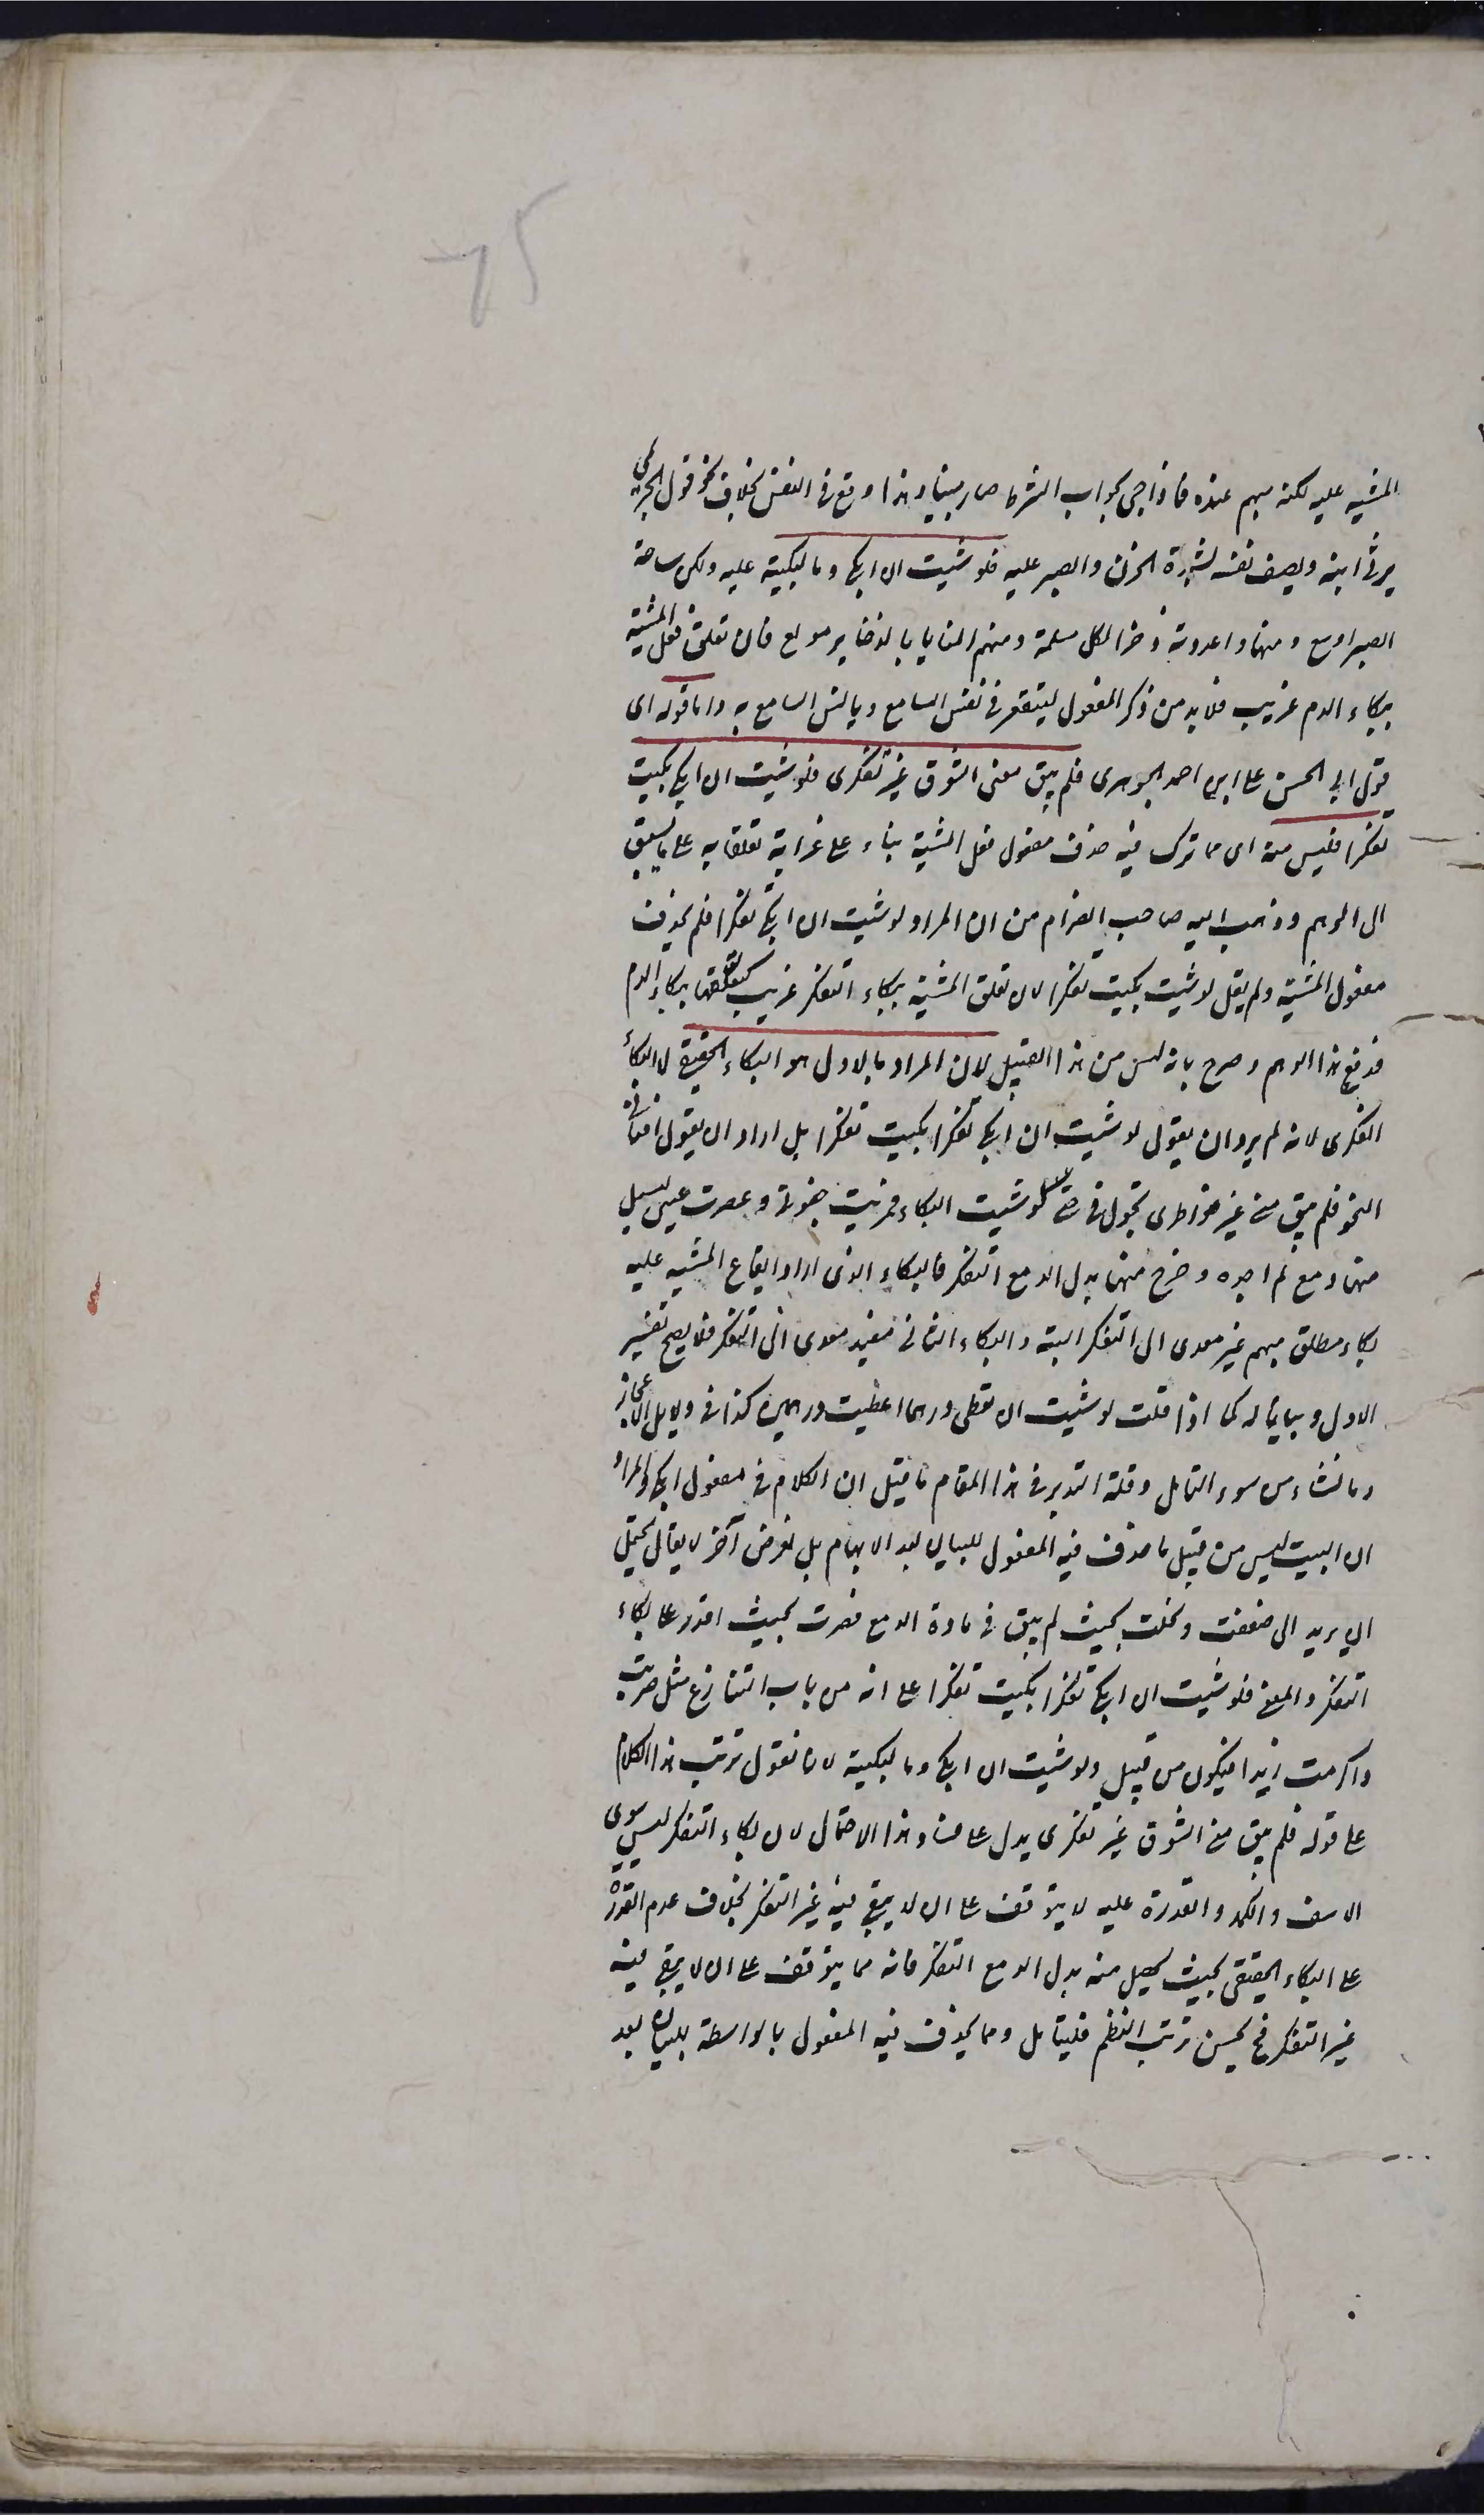 المشية عليه لكنه مبهم عنده فاذا جئ بجواب الشرط صار مبينا وهذا اوقع فى النفس بخلاف نحو قول الخريمى
يرثى ابنه ويصف نفسه بشدة الحزن والصبر عليه فلو شئت ان ابكى دما لبكيته عليه ولكن ساحة
الصبر اوسع ومنها واعددته ذخرا لكل ملمة وسهم المنايا بالذخاير مولع فان تعلق فعل المشية
ببكاء الدم غريب فلا بد من ذكر المفعول ليتقرر فى نفس السامع ويانس السامع به واما قوله اى
قول ابى الحسن على ابن احمد الجوهرى فلم يبق منى الشوق غير تفكرى فلو شئت ان ابكى بكيت
تفكرا فليس منه اى مما ترك فيه حذف مفعول فعل المشية بناء على غرابة تعلقها به على ما يسبق
الى الوهم وذهب اليه صاحب الضرام من ان المراد لو شئت ان ابكى تفكرا فلم يحذف
مفعول المشية ولم يقل لو شئت بكيت تفكرا لان تعلق المشية ببكاء التفكر غريب كتعلقها ببكاء الدم
فدفع هذا الوهم وصرح بانه ليس من هذا القبيل لان المراد بالاول هو البكاء الحقيقى لا البكاء
الفكرى لانه لم يرد ان يقول لو شئت ان ابكى تفكرا بكيت تفكرا بل اراد ان يقول افنانى
النحو فلم يبق منى غير خواطرى تجول فى حتى لو شئت البكاء فمريت جفونى وعصرت عينى ليسيل
منها دمع لم اجده وخرج منها بدل الدمع التفكر فالبكاء الذى اراد ايقاع المشية عليه
بكاء مطلق مبهم غير معدى الى التفكر البتة والبكاء الثانى مقيد معدى الى التفكر فلا يصح تفسير
الاول وبيانا له كما اذا قلت لو شئت ان تعطى درهما اعطيت درهمين كذا فى دلايل الاعجاز
ومما نشاء من سوء التامل وقلة التدبر فى هذا المقام ما قيل ان الكلام فى مفعول ابكى والمراد
ان البيت ليس من قبيل ما حذف فيه المفعول للبيان بعد الابهام بل لغرض آخر لا يقال يحتمل
ان يريد انى ضعفت ونحلت بحيث لم يبق فى مادة الدمع فصرت بحيث اقدر على بكاء
التفكر والمعنى فلو شئت ان ابكى تفكرا بكيت تفكرا على انه من باب التنازع مثل ضربت
واكرمت زيدا فيكون من قبيل ولو شئت ان ابكى دما لبكيته لانا نقول ترتب هذا الكلام
على قوله فلم يبق منى الشوق غير تفكرى يدل على فساد هذا الاحتمال لان بكاء التفكر ليس سوى
الاسف والكمد والقدرة عليه لا يتوقف على ان لا يبقى فيه غير التفكر بخلاف عدم القدرة
على البكاء الحقيقى بحيث يحصل منه بدل الدمع التفكر فانه مما يتوقف على ان لا يبقى فيه
غير التفكر فح يحسن ترتب النظم فليتامل ومما يحذف فيه المفعول بالواسطة للبيان بعد